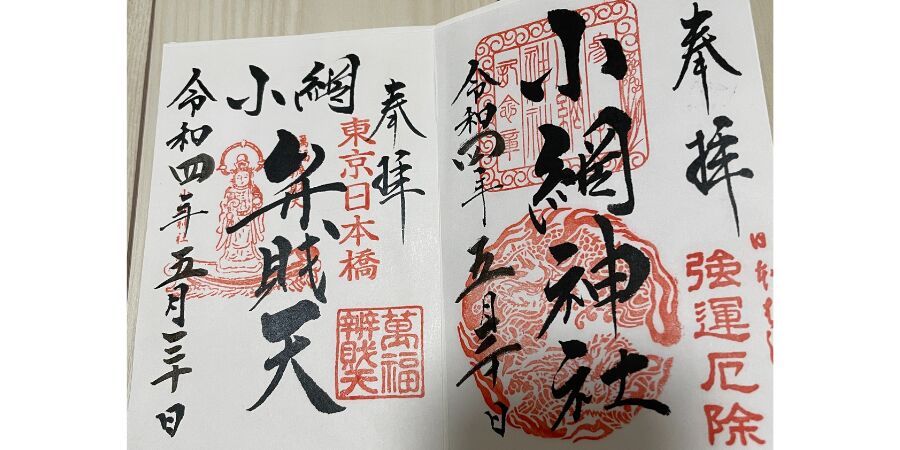 奉拝
強運厄除
小網神社
令和四年五月三十日
奉拝
東京日本橋
萬福
辨財天
小網
弁財天
令和四年五月三十日